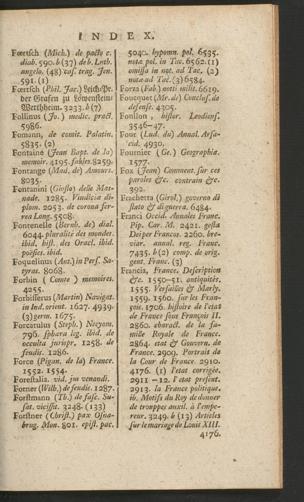 INDEX.
Foertsch (Mich.) de pacto c.
diab. 590. b (37) de b. Luth.
angelo. (48) caf. trag. Jen.
591. (1)
Foertsch (Phil. Jac.)
der Grafen zu Löwenstein
Wertheim. 3233. b (7)
Follinus (Jo.) medic. pract.
5986.
Fomann, de comit. Palatin.
5835. (2)
Fontaine (Jean Bapt. de la)
memoir. 4195. fables. 8259.
Fontange (Mad. de) Amours.
8035.
Fontanini (Giusto) delle Mas-
nade. 1285. Vindiciæ di-
plom. 2053. de corona fer-
rea Long. 5508.
Fontenelle (Bernh. de) dial.
6044. pluralité des mondes.
ibid. hist. des Oracl. ibid.
poësies. ibid.
Foquelinus (Ant.) in Perf. Sa-
tyras. 8068.
Forbin (Comte) memoires.
4255.
Forbisserus (Martin) Navigat.
in Ind. orient. 1627. 4939.
(3) germ. 1675.
Forcatulus (Steph.) Necyom.
796. sphæra leg. ibid. de
occulta jurispr. 1258. de
feudis. 1286.
Force (Pigan. de la) France.
1552. 1554.
Forestalia. vid. jus venandi.
Forner (Wilh.) de feudis. 1287.
Forstmann (Th.) de fuse. Su-
sat. vicissit. 3248. (133)
Forstner (Christ.) pax Osna-
brug. Mon. 801. epist. pac.
5040. hypomn. pol. 6535.
notæ pol. in Tac. 6562. (1)
omissa in not. ad Tac. (2)
notæ ad Tac. (3) 6584.
Forza (Fab.) noti milit. 6619.
Foucquet (Mr. de) Conclus. de
defense. 4305.
Foullon, histor. Leodiens.
3546-47.
Four (Lud. du) Annal. Arsa-
cid. 4930.
Fournier (Ge.) Geographia.
1577.
Fox (Jean) Comment. sur ces
paroles &c. contrain &c.
392.
Frachetta (Girol.) governo di
stato & di guerra. 6484.
Franci Occid. Annales Franc.
Pip. Car. M. 2421. gesta
Dei per Francos. 2260. bre-
viar. annal. reg. Franc.
7435. b (2) comp. de orig.
gent. Franc. (3)
Francia, France. Description
&c. 1550-51. antiquités.
1555. Versailles & Marly.
1559. 1560. sur les Fran-
çois. 1706. histoire de l'etat
de France sous François II.
2860. charact. de la fa-
mille Royale de France.
2864. etat & Gouvern. de
France. 2909. Portrait de
la Cour de France. 2910.
4176. (1) l'etat corrigée.
2911-12. l'etat present.
2913. la France politique.
ib. Motifs du Roy de donner
de trouppes auxil. à l'empe-
reur. 3249. b (13) Articles
sur le mariage de Louis XIII.
4176.